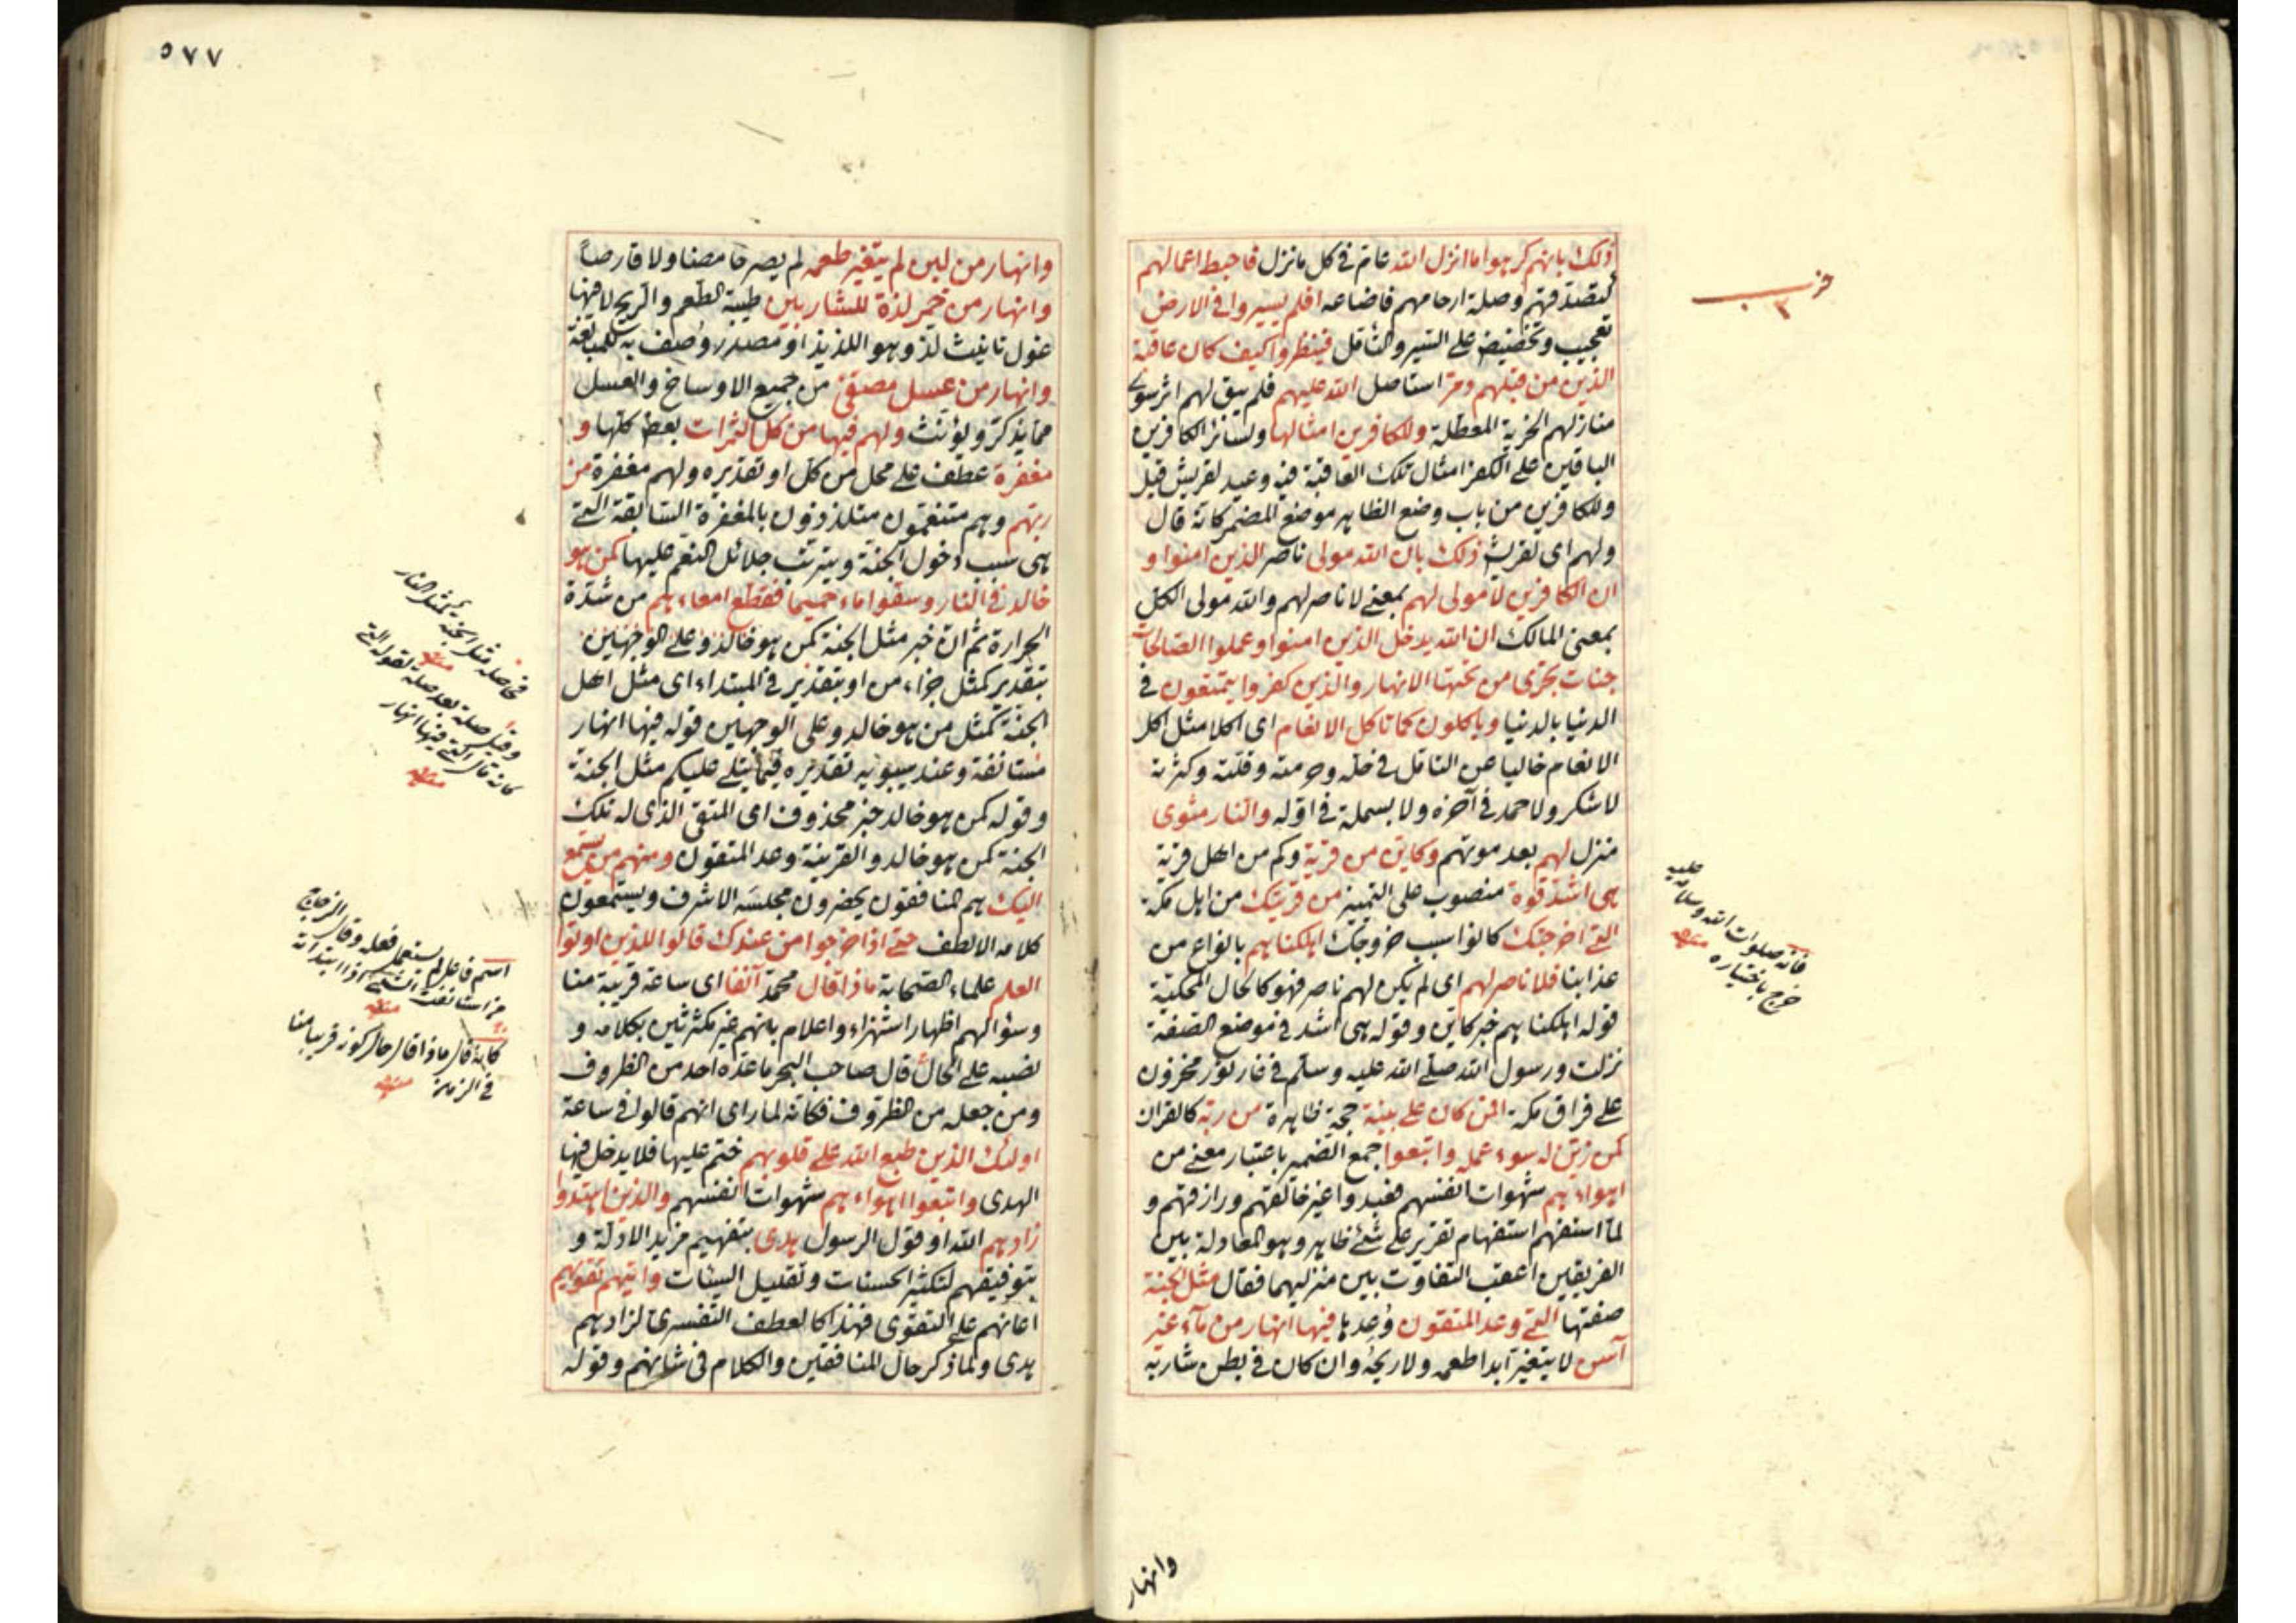 ذلك بانهم كرهوا ما انزل الله عام في كل ما نزل فاحبط اعمالهم
كتصدقهم وصلة ارحامهم فاضاعه افلم يسيروا في الارض
تعجيب وتحضيض على السير والتأمل فينظروا كيف كان عاقبة
الذين من قبلهم دمر استاصل الله عليهم فلم يبق لهم اثر سوى
منازلهم الخربة المعطلة وللكافرين امثالها ولسائر الكافرين
الباقين على الكفر امثال تلك العاقبة فيه وعيد لقريش قيل
وللكافرين من باب وضع الظاهر موضع المضمر كانه قال
ولهم اى لقريش ذلك بان الله مولى ناصر الذين امنوا و
ان الكافرين لا مولى لهم بمعنى لا ناصر لهم والله مولى الكل
بمعنى المالك ان الله يدخل الذين امنوا وعملوا الصالحات
جنات تجرى من تحتها الانهار والذين كفروا يتمتعون في
الدنيا بالدنيا وياكلون كما تاكل الانعام اى اكلا مثل اكل
الانعام خاليا عن التامل في حله وحرمته وقلته وكثرته
لا شكر ولا حمد في آخره ولا بسملة في اوله والنار مثوى
منزل لهم بعد موتهم وكاين من قرية وكم من اهل قرية
هى اشد قوة منصوب على التمييز من قريتك من اهل مكة
التى اخرجتك كانوا سبب خروجك اهلكناهم بانواع من
عذابنا فلا ناصر لهم اى لم يكن لهم ناصر فهو كالحال المحكية
قوله اهلكناهم خبر كاين وقوله هى اشد في موضع الصفة
نزلت ورسول الله صلى الله عليه وسلم في غار ثور محزون
على فراق مكة افمن كان على بينة حجة ظاهرة من ربه كالقران
كمن زين له سوء عمله واتبعوا جمع الضمير باعتبار معنى من
اهواءهم شهوات انفسهم فعبدوا غير خالقهم ورازقهم و
لما استفهم استفهام تقرير على شئ ظاهر وهو المعادلة بين
الفريقين اعقب التفاوت بين منزليهما فقال مثل الجنة
صفتها التى وعد المتقون وعدها فيها انهار من مآء غير
آسن لا يتغير ابدا طعمه ولا ريحه وان كان في بطن شاربه
حزب
فانه صلوات الله وسلامه عليه
خرج باختياره منه
وانهار
٥٧٧
وانهار من لبن لم يتغير طعمه لم يصر حامضا ولا قارصا
وانهار من خمر لذة للشاربين طيبة الطعم والريح لا فيها
غول تانيث لذ وهو اللذيذ او مصدر وصف به للمبالغة
وانهار من عسل مصفى من جميع الاوساخ والعسل
مما يذكر ويؤنث ولهم فيها من كل الثمرات بعض كلها و
مغفرة عطف على محل من كل او تقديره ولهم مغفرة من
ربهم وهم متنعمون متلذذون بالمغفرة السابقة التى
هى سبب دخول الجنة ويترتب جلائل النعم عليها كمن هو
خالد في النار وسقوا ماء حميما فقطع امعاءهم من شدة
الحرارة ثم ان خبر مثل الجنة كمن هو خالد وعلى الوجهين
بتقدير كمثل جزاء من او بتقدير في المبتداء اى مثل اهل
الجنة كمثل من هو خالد وعلى الوجهين قوله فيها انهار
مستانفة وعند سيبويه تقديره فيما يتلى عليكم مثل الجنة
وقوله كمن هو خالد خبر محذوف اى المتقى الذى له تلك
الجنة كمن هو خالد والقرينة وعد المتقون ومنهم من يستمع
اليك هم المنافقون يحضرون مجلسه الاشرف ويستمعون
كلامه الالطف حتى اذا خرجوا من عندك قالوا للذين اوتوا
العلم علماء الصحابة ماذا قال محمد آنفا اى ساعة قريبة منا
وسؤالهم اظهار استهزاء واعلام بانهم غير مكترثين بكلامه و
نصبه على الحال قال صاحب البحر ما عده احد من الظروف
ومن جعله من الظروف فكانه لما راى انهم قالوا في ساعة
اولئك الذين طبع الله على قلوبهم ختم عليها فلا يدخل فيها
الهدى واتبعوا اهواءهم شهوات انفسهم والذين اهتدوا
زادهم الله او قول الرسول هدى بتفهيم مزيد الادلة و
بتوفيقهم لتكثير الحسنات وتقليل السيئات وآتيهم تقويهم
اعانهم على التقوى فهذا كالعطف التفسرى لزادهم
هدى ولما ذكر حال المنافقين والكلام في شانهم وقوله
فحاصله مثل الجنة كمثل النار
منه
وقيل صلة بعد صلة لقوله التى
كانه قال التى فيها انهار
منه
اسم فاعل لم يستعمل فعله وقال الزجاج
من استانفت الشئ اذا ابتداته
منه
كانه قال ماذا قال حال كونه قريبا منا
في الزمن منه